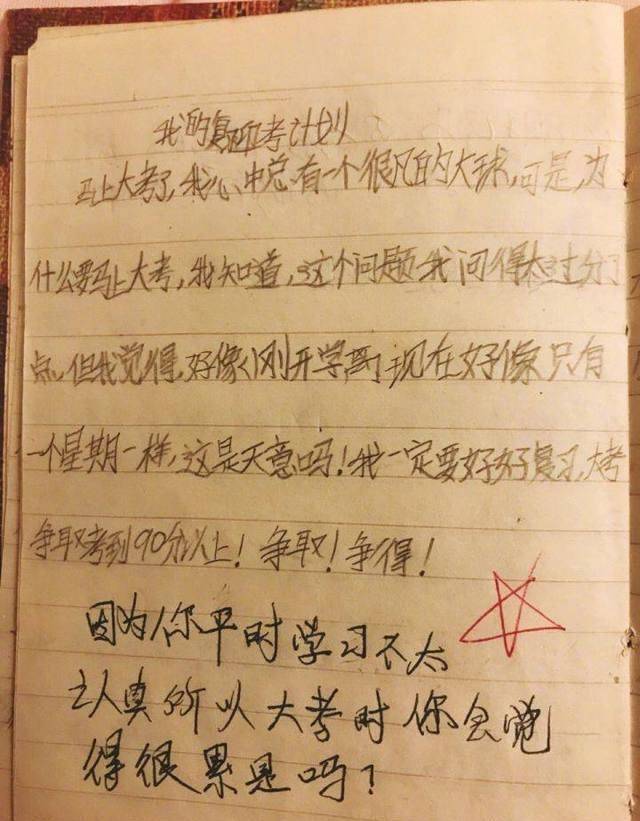 我的复习考计划
马上大考了,我心中总有一个很大的大球,可是,为
什么要马上大考,我知道,这个问题我问得太过分了
点,但我觉得,好像刚刚开学离现在好像只有
一个星期一样,这是天意吗!我一定要好好复习,大考
争取考到90分以上!争取!争得!
因为你平时学习不太
认真所以大考时你会觉
得很累是吗?